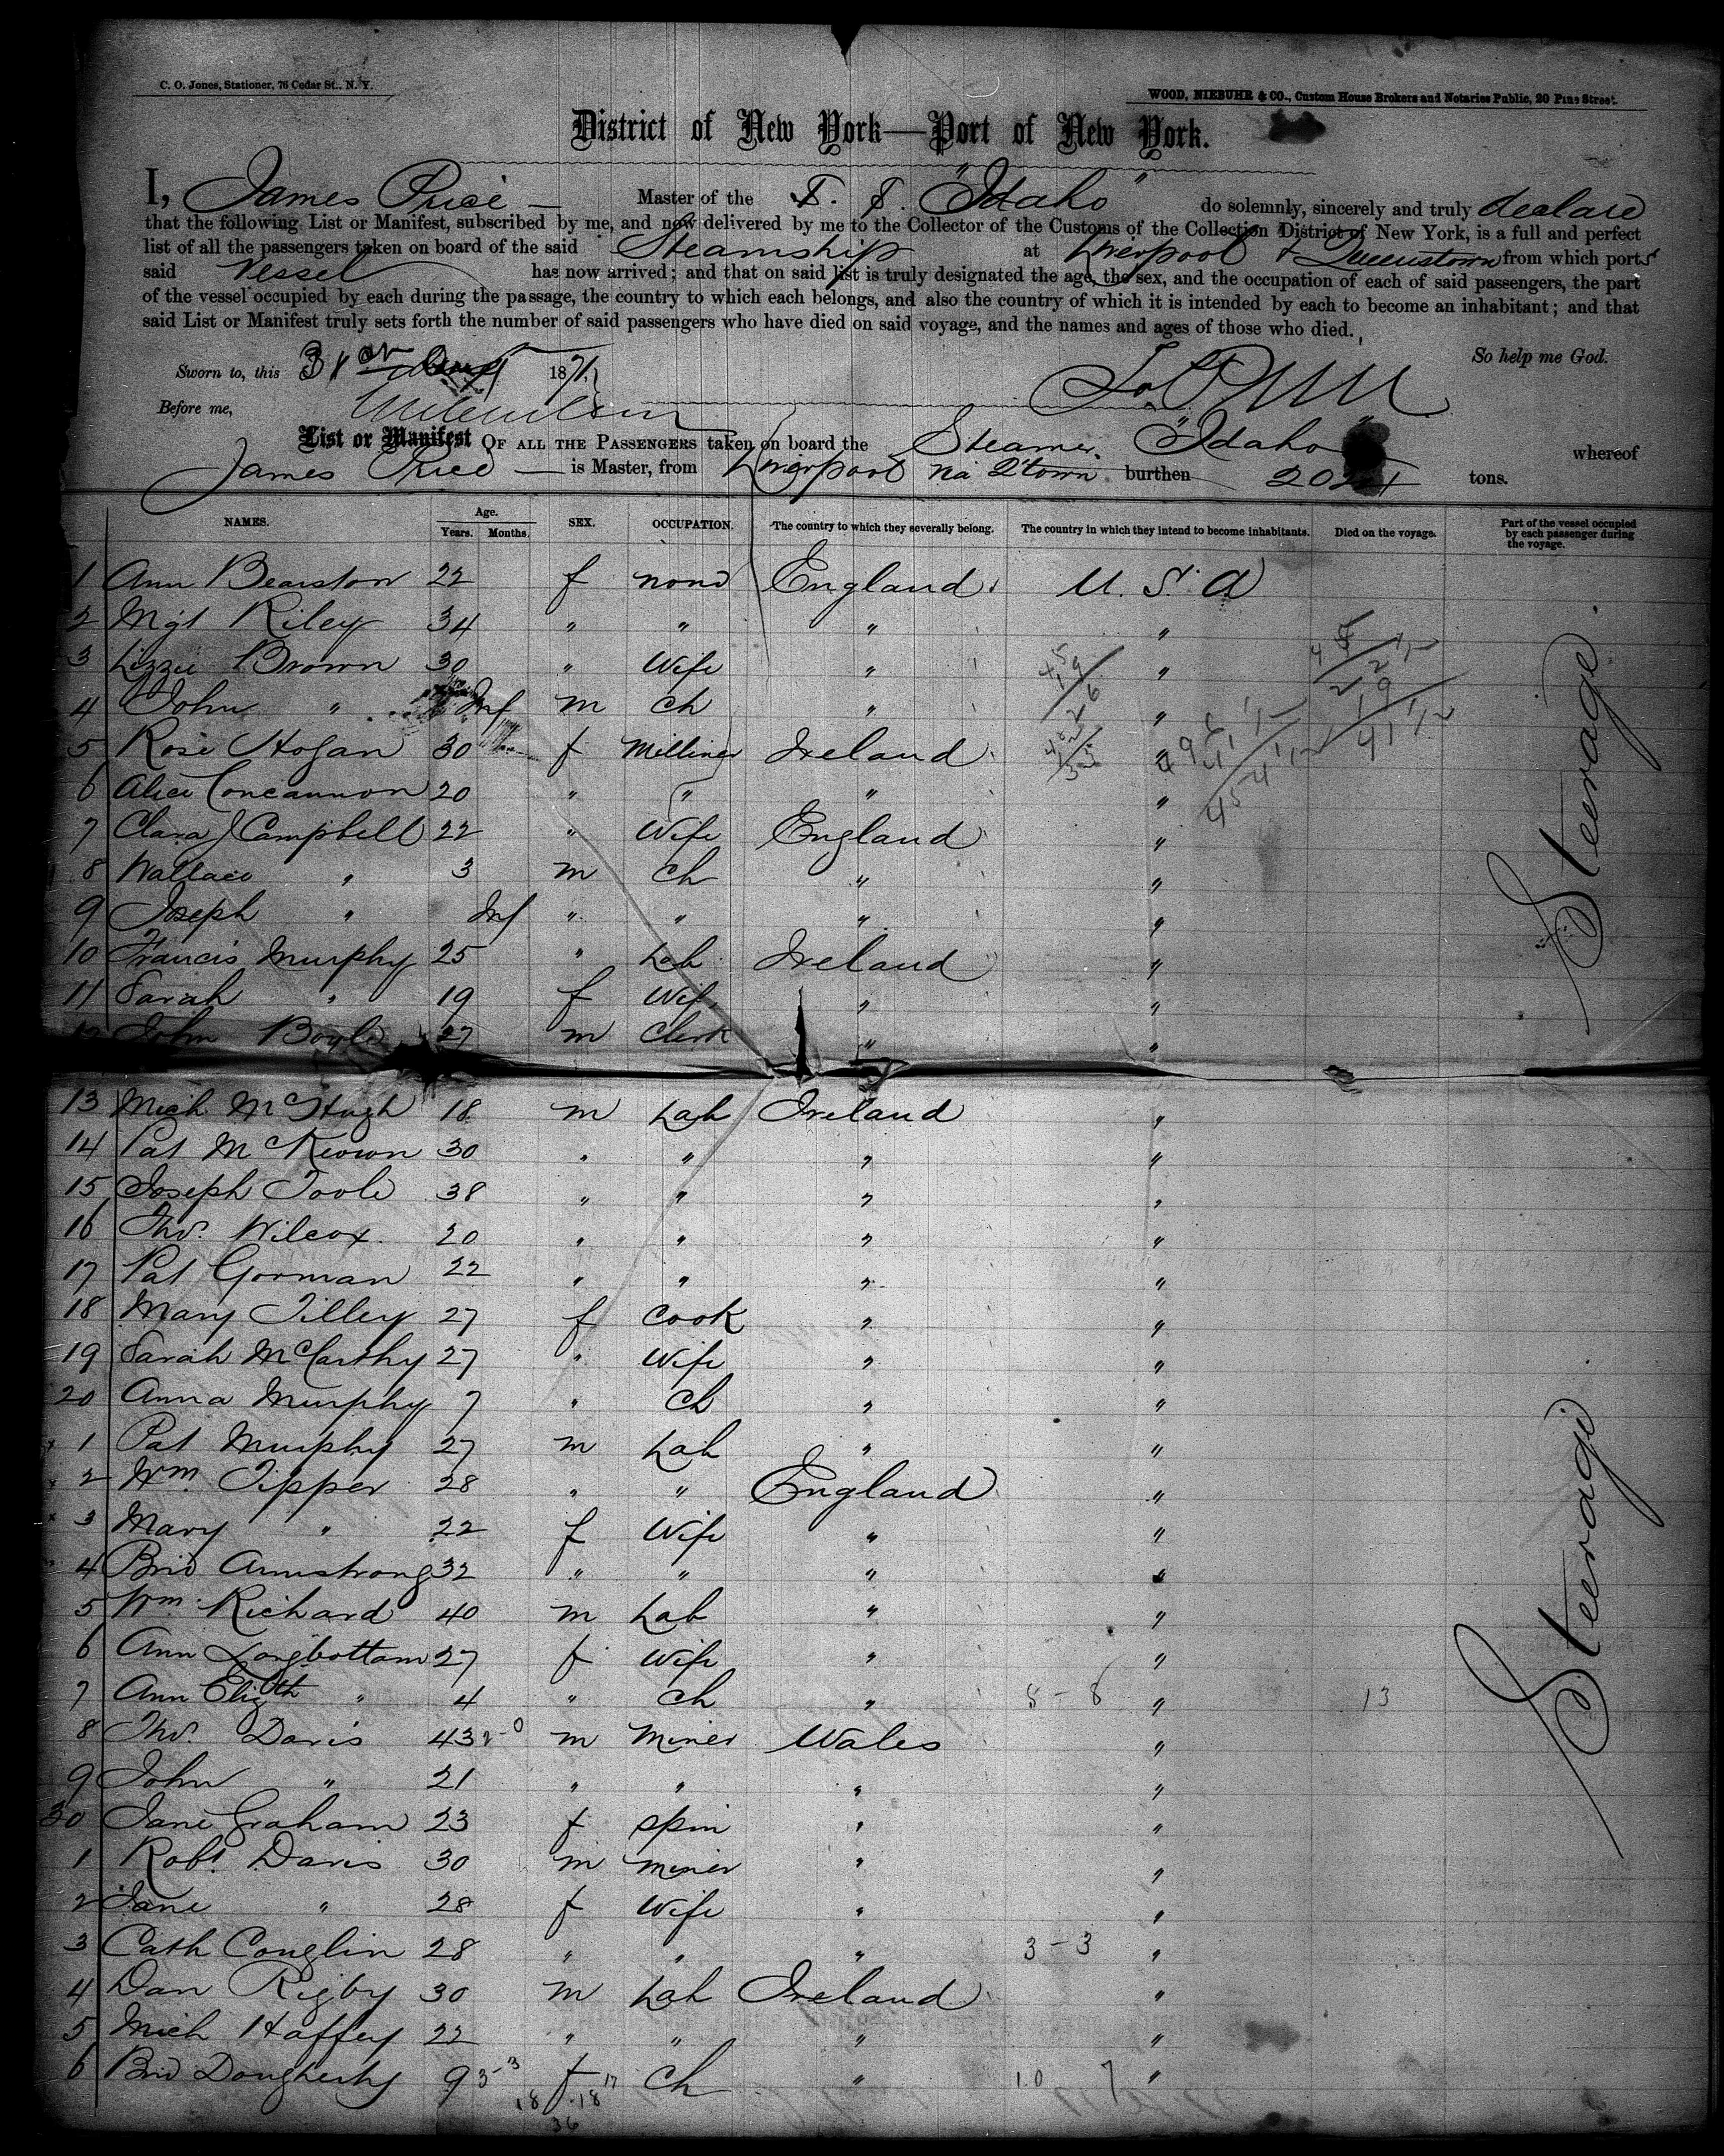 C. O. Jones, Stationer, 76 Cedar St., N. Y.
WOOD, NIEBUHR & CO., Custom House Brokers and Notaries Public, 20 Pine Street.
District of New York—Port of New York.
I, James Price — Master of the S. S. "Idaho" do solemnly, sincerely and truly declare
that the following List or Manifest, subscribed by me, and now delivered by me to the Collector of the Customs of the Collection District of New York, is a full and perfect
list of all the passengers taken on board of the said Steamship at Liverpool & Queenstown from which ports
said Vessel has now arrived; and that on said list is truly designated the age, the sex, and the occupation of each of said passengers, the part
of the vessel occupied by each during the passage, the country to which each belongs, and also the country of which it is intended by each to become an inhabitant; and that
said List or Manifest truly sets forth the number of said passengers who have died on said voyage, and the names and ages of those who died.
So help me God.
Sworn to, this 31st 1871
Before me,
List or Manifest OF ALL THE PASSENGERS taken on board the Steamer "Idaho" whereof
James Price — is Master, from Liverpool via Q'town burthen tons.
NAMES. Age. Years. Months. SEX. OCCUPATION. The country to which they severally belong. The country in which they intend to become inhabitants. Died on the voyage. Part of the vessel occupied by each passenger during the voyage.
1 Ann Bearston 22 f none England U. S. A
2 Mgt Riley 34 " " " "
3 Lizzie Brown 30 " Wife " "
4 John " Inf m Ch " "
5 Rose Hogan 30 f Milliner Ireland "
6 Alice Concannon 20 " " " "
7 Clara J Campbell 22 " Wife England "
8 Wallace " 3 m Ch " "
9 Joseph " Inf " " " "
10 Francis Murphy 25 " Lab Ireland "
11 Sarah " 19 f Wife " "
12 John Boyle 27 m Clerk " "
Steerage
13 Mich McHugh 18 m Lab Ireland "
14 Pat McKeown 30 " " " "
15 Joseph Toole 38 " " " "
16 Thos. Wilcox 20 " " " "
17 Pat Gorman 22 " " " "
18 Mary Tilley 27 f Cook " "
19 Sarah McCarthy 27 " Wife " "
20 Anna Murphy 7 " Ch " "
1 Pat Murphy 27 m Lab " "
2 Wm. Tipper 28 " " England "
3 Mary " 22 f Wife " "
4 Brid Armstrong 32 " " " "
5 Wm. Richard 40 m Lab " "
6 Ann Longbottom 27 f Wife " "
7 Ann Elizth " 4 " Ch " 8 - 8 " 13
8 Thos. Davis 43 m Miner Wales "
9 John " 21 " " " "
30 Jane Graham 23 f Spin " "
1 Robt. Davis 30 m Miner " "
2 Jane " 28 f Wife " "
3 Cath Conglin 28 " " " 3 - 3 "
4 Dan Rigby 30 m Lab Ireland "
5 Mich Haffey 22 " " " "
6 Brid Dougherty 9 f Ch " 10 7 "
Steerage
18 18
36